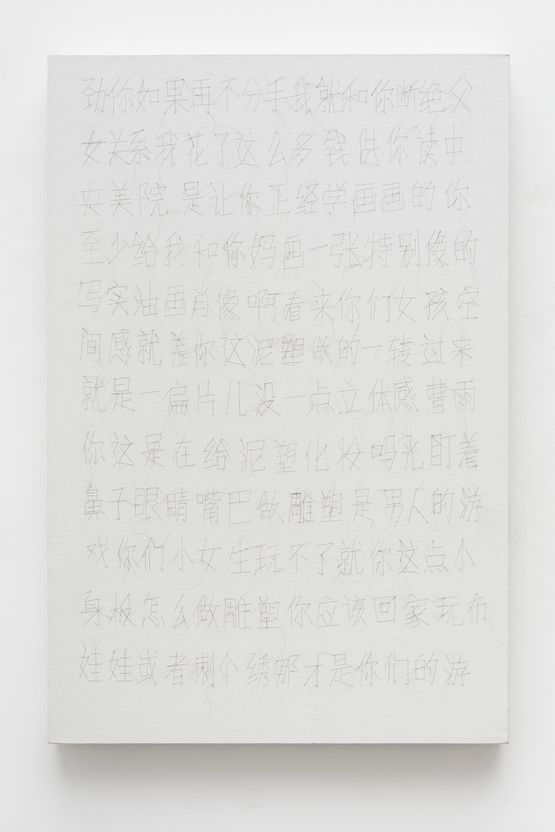 劲你如果再不分手我就和你断绝父
女关系我花了这么多钱供你读中
央美院是让你正经学画画的你
至少给我和你妈画一张特别像的
写实油画肖像啊看来你们女孩空
间感就差你这泥塑做的一转过来
就是一扁片儿没一点立体感曹雨
你这是在给泥塑化妆吗光盯着
鼻子眼睛嘴巴做雕塑是男人的游
戏你们小女生玩不了就你这点小
身板怎么做雕塑你应该回家玩布
娃娃或者刺个绣那才是你们的游